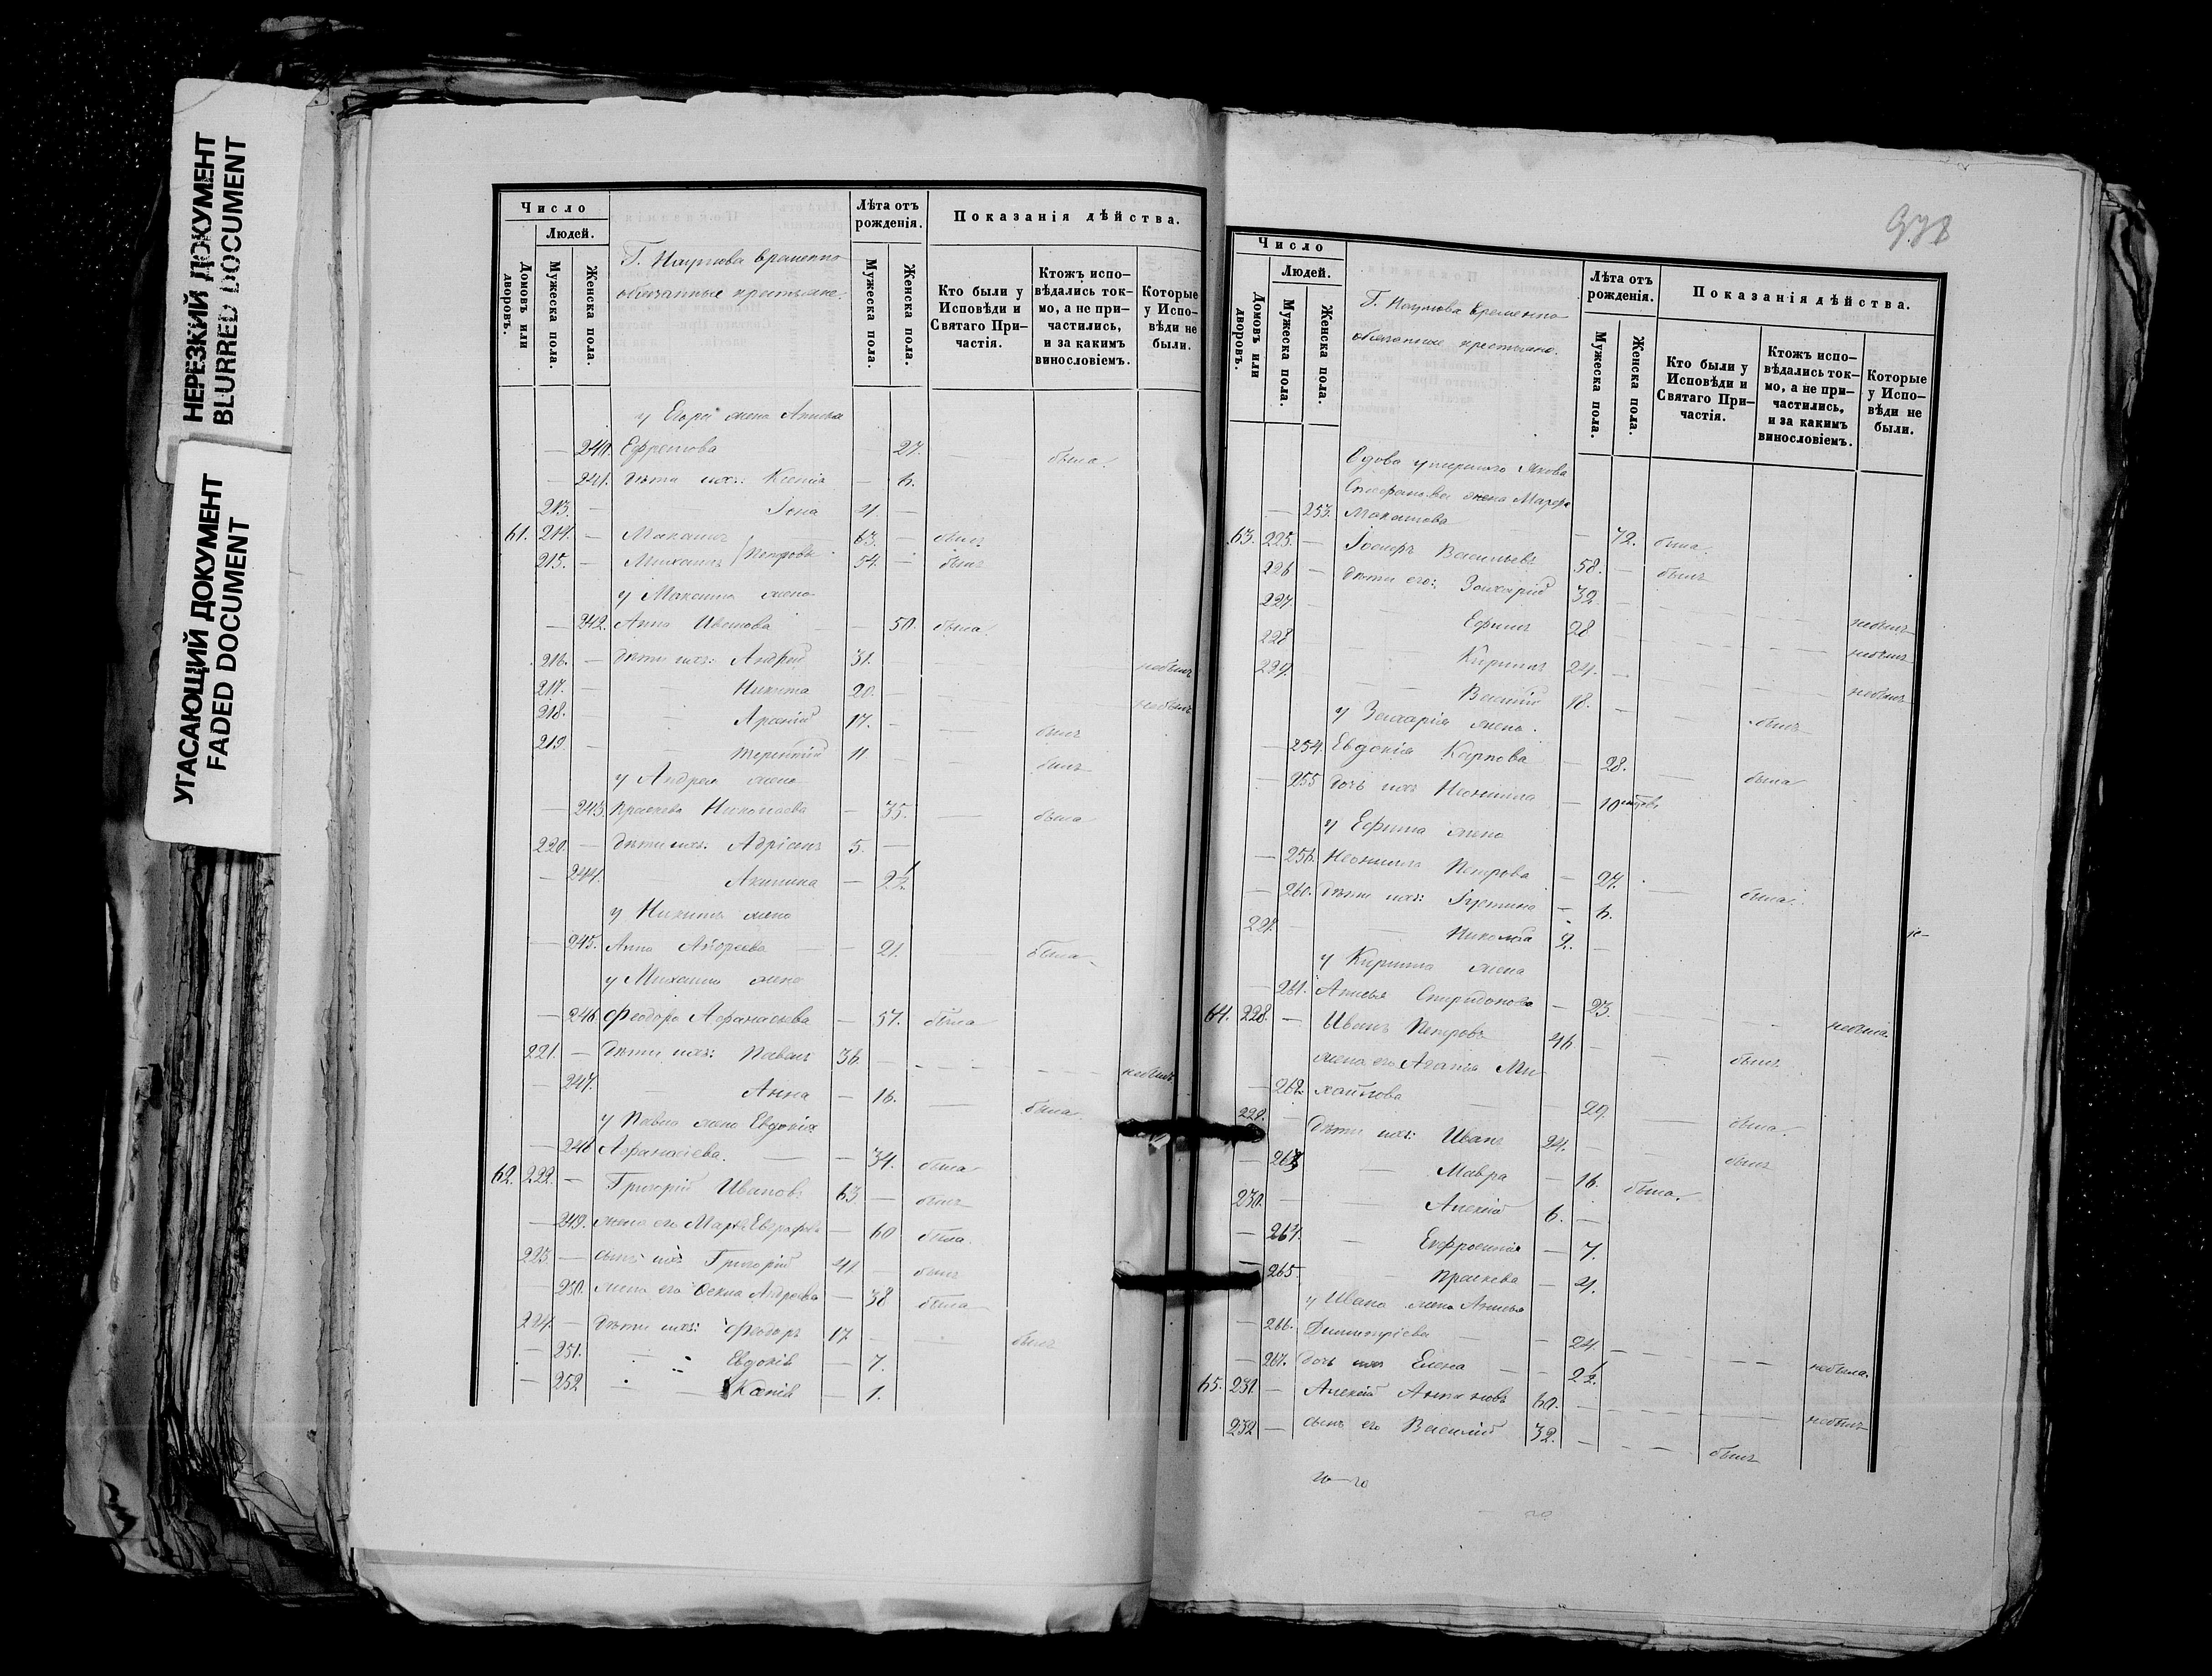 НЕРЕЗКИЙ ДОКУМЕНТ
BLURRED DOCUMENT
УГАСАЮЩИЙ ДОКУМЕНТ
FADED DOCUMENT
Число
Людей.
Домовъ или дворовъ.
Мужеска пола.
Женска пола.
Г. Наумова временно
обязанные крестьяне.
Лѣта отъ рожденія.
Мужеска пола.
Женска пола.
Показанія дѣйства.
Кто были у Исповѣди и Святаго При-частія.
Ктожъ испо-вѣдались ток-мо, а не при-частились, и за какимъ винословіемъ.
Которые у Испо-вѣди не были.
у жена
— 240. Ефремова 27. — была.
— 241. дѣти ихъ: Ксенія — 6.
213. — Іона 4. —
61. 214. — Максимъ 63. — былъ
215. — Михаилъ Петровы 54. — былъ
у Максима жена
— 242. Анна Иванова — 50. была.
216. — дѣти ихъ: Андрей 31. — небылъ
217. — Никита 20. — небылъ
218. — Арсеній 17. — былъ
219. — Терентій 11. — былъ
у Андрея жена
— 243. Николаева — 35. — была
220. — дѣти ихъ: Адріанъ 5. —
— 244. Акилина — 2½.
у Никиты жена
— 245. Анна Андреева — 21. — была
у Михаила жена
— 246. Феодора Афанасьева — 57. была
221. — дѣти ихъ: Павелъ 36. — небылъ
— 247. — Анна — 16. — была.
у Павла жена Евдокія
— 248 Афанасіева. — 34. была
62. 222. — Григорій Ивановъ 63. — былъ
— 249. жена его — 60 была.
223. — сынъ ихъ Григорій 41. — былъ
— 250. жена его Андреева — 38 была
224. — дѣти ихъ: Феодоръ 17 — былъ
— 251. Евдокія — 7.
— 252 Ксенія — 1.
978
Число
Людей.
Домовъ или дворовъ.
Мужеска пола.
Женска пола.
Г. Наумова временно
обязанные крестьяне.
Лѣта отъ рожденія.
Мужеска пола.
Женска пола.
Показанія дѣйства.
Кто были у Исповѣди и Святаго При-частія.
Ктожъ испо-вѣдались ток-мо, а не при-частились, и за какимъ винословіемъ.
Которые у Испо-вѣди не были.
умершаго Якова
жена
— 253. — 72. была.
63. 225. — Іосифъ Васильевъ 58. — былъ
226 — дѣти его: Захарій 32. — небылъ
227. — Ефимъ 28 — небылъ
228 — Кириллъ 24. — небылъ
229. — Василій 18. — былъ
у Захарія жена
— 254. Евдокія Карпова — 28. — была
— 255 дочь ихъ — 10
у Ефима жена
— 256. Петрова — 27. — была.
— 260. дѣти ихъ: Іустина — 6.
221. — Николай 2. —
у Кирилла жена
— 261. Анисья Спиридонова — 23. — небыла.
64. 228. — Иванъ Петровъ 46 — былъ
жена его Агапія Ми-
— 262. хайлова — 29. — была.
229. — дѣти ихъ: Иванъ 24. — былъ
— 263 — Мавра — 16. была.
230. — Алексій 6. —
— 264. — Евфросинія — 7.
— 265. — — 4.
у Ивана жена Анисья
— 266. Димитріева — 24. — небыла.
— 267. дочь ихъ Елена — 2½.
65. 231 — Алексій 60. — небылъ
232 — сынъ его Василій 32. — былъ